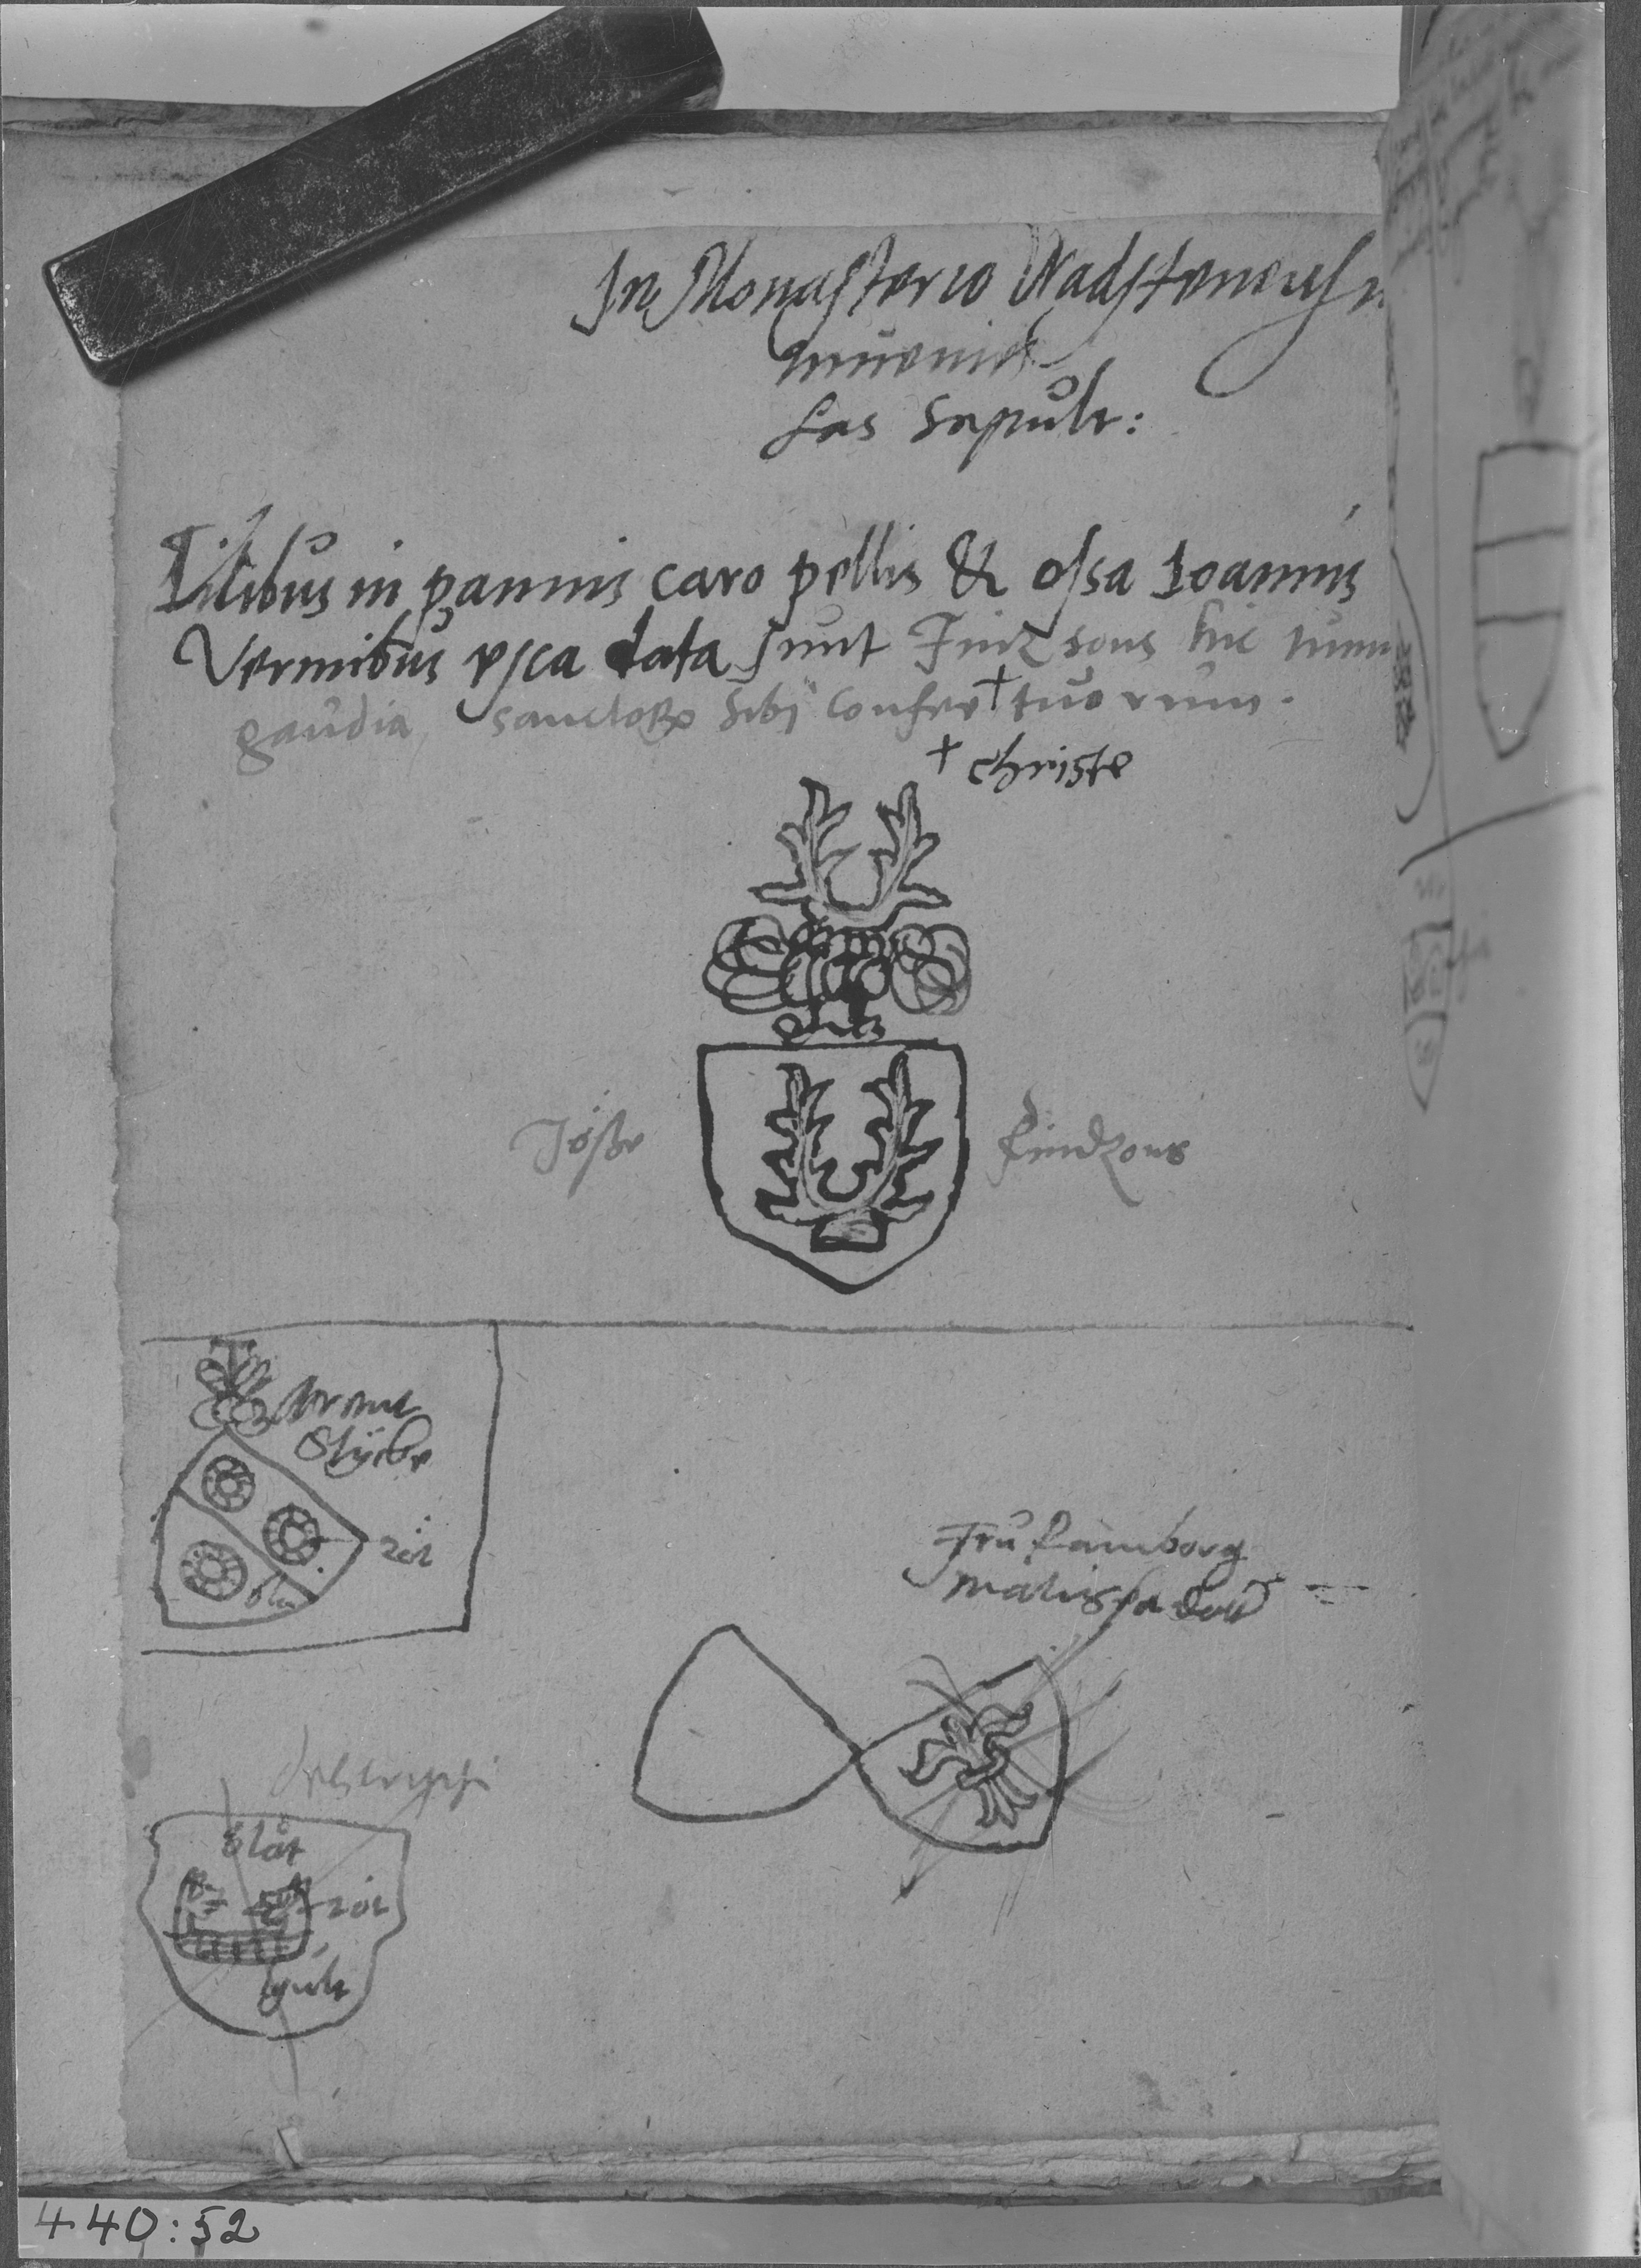 In Monasterio Wadstenensi
inueni
has sepult:
Vilibus in pannis caro pellis & ossa Ioannis
Vermibus esca data sunt Finzsons hic tum
gaudia sanctorx sibi confer + tuorum.
+ christe
Jösse
findzons
Brant
Stÿcke
röt
blå
Fru Ramborg
matissa dott
blåt
röt
gult
440:52